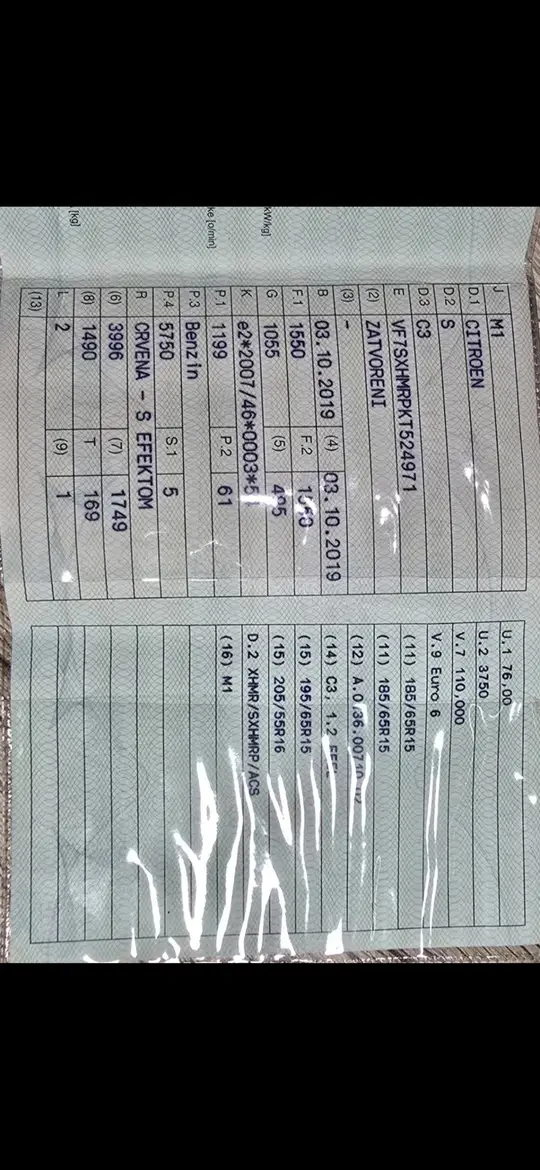 J M1
D.1 CITROEN
D.2 S
D.3 C3
E VF7SXHMRPKT524971
(2) ZATVORENI
(3) -
B 03.10.2019 (4) 03.10.2019
F.1 1550 F.2
kW/kg]
G 1055 (5)
K e2*2007/46*0003*5
P.1 1199 P.2 61
ke [o/min]
P.3 Benzin
P.4 5750 S.1 5
R CRVENA - S EFEKTOM
(6) 3996 (7) 1749
(8) 1490 T 169
[kg]
L 2 (9) 1
(13)
U.1 76,00
U.2 3750
V.7 110,000
V.9 Euro 6
(11) 185/65R15
(11) 185/65R15
(12)
(14) C3, 1.2
(15) 195/65R15
(15) 205/55R16
D.2 XHMR/SXHMRP/ACS
(16) M1